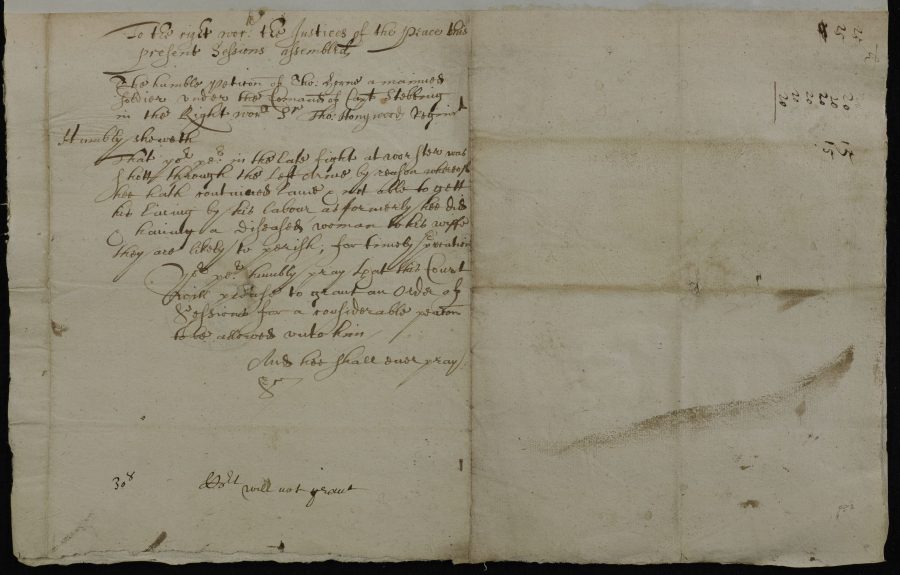 To the right wor:ll the Justices of the Peace this
present Sessions assembled
The humble Petition of Tho: a maimed
soldier under the Comand of Capt Stebbing
in the Right worll Sr Tho: Honywood Regimt
Humbly sheweth
That yor per in the late fight at worster was
shott through the left arme by reason whereof
hee hath continued lame & not able to gett
his living by his labour as formerly hee did
& having a diseased woman to his wiffe
they are likely to perish, for timely prevention
Yor per humbly pray that this Court
will please to grant an Order of
Sessions for a considerable pention
to be allowed unto him
And hee shall ever pray
&c
30s will not grant
25
25
20
20
20
20
20
20
15
15